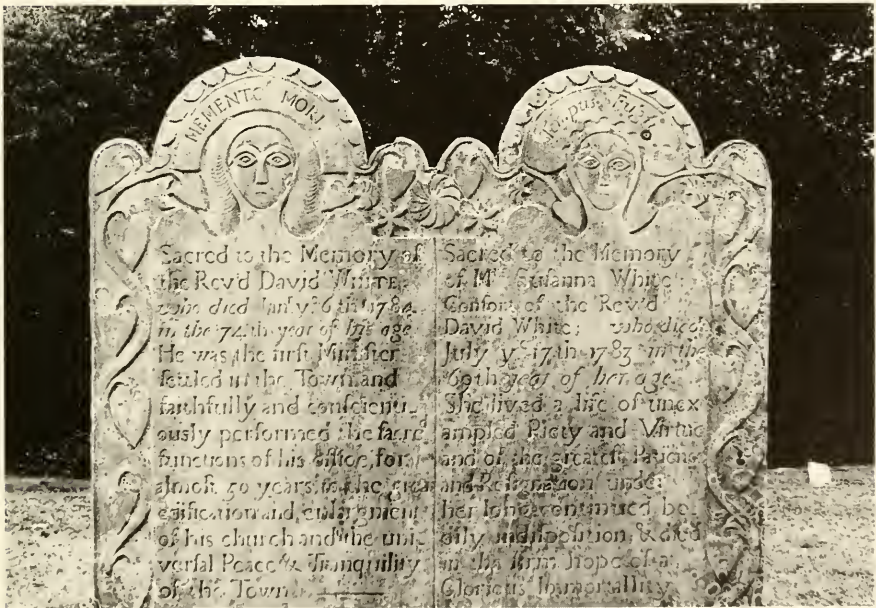 MEMENTO MORI
Sacred to the Memory of
the Rev'd David WHITE,
who died July yᵉ 6th 1784
in the 74th year of his age
He was the first Minister
settled in the Town and
faithfully and conscienti
ously performed the sacre
functions of his office, for
almost 50 years, to the
edification and enlargment
of his church and the uni
versal Peace & Tranquility
of the Town
Tempus Fugit
Sacred to the Memory
of Mʳˢ Susanna White
Consort of the Rev'd
David White; who died
July yᵉ 17th 1783 in the
69th year of her age
She lived a life of unex
ampled Piety and Virtue
and of the greatest Patienc
and Resignation under
her long continued bo
dily indisposition, & died
in the firm hope of a
Glorious Immortallity